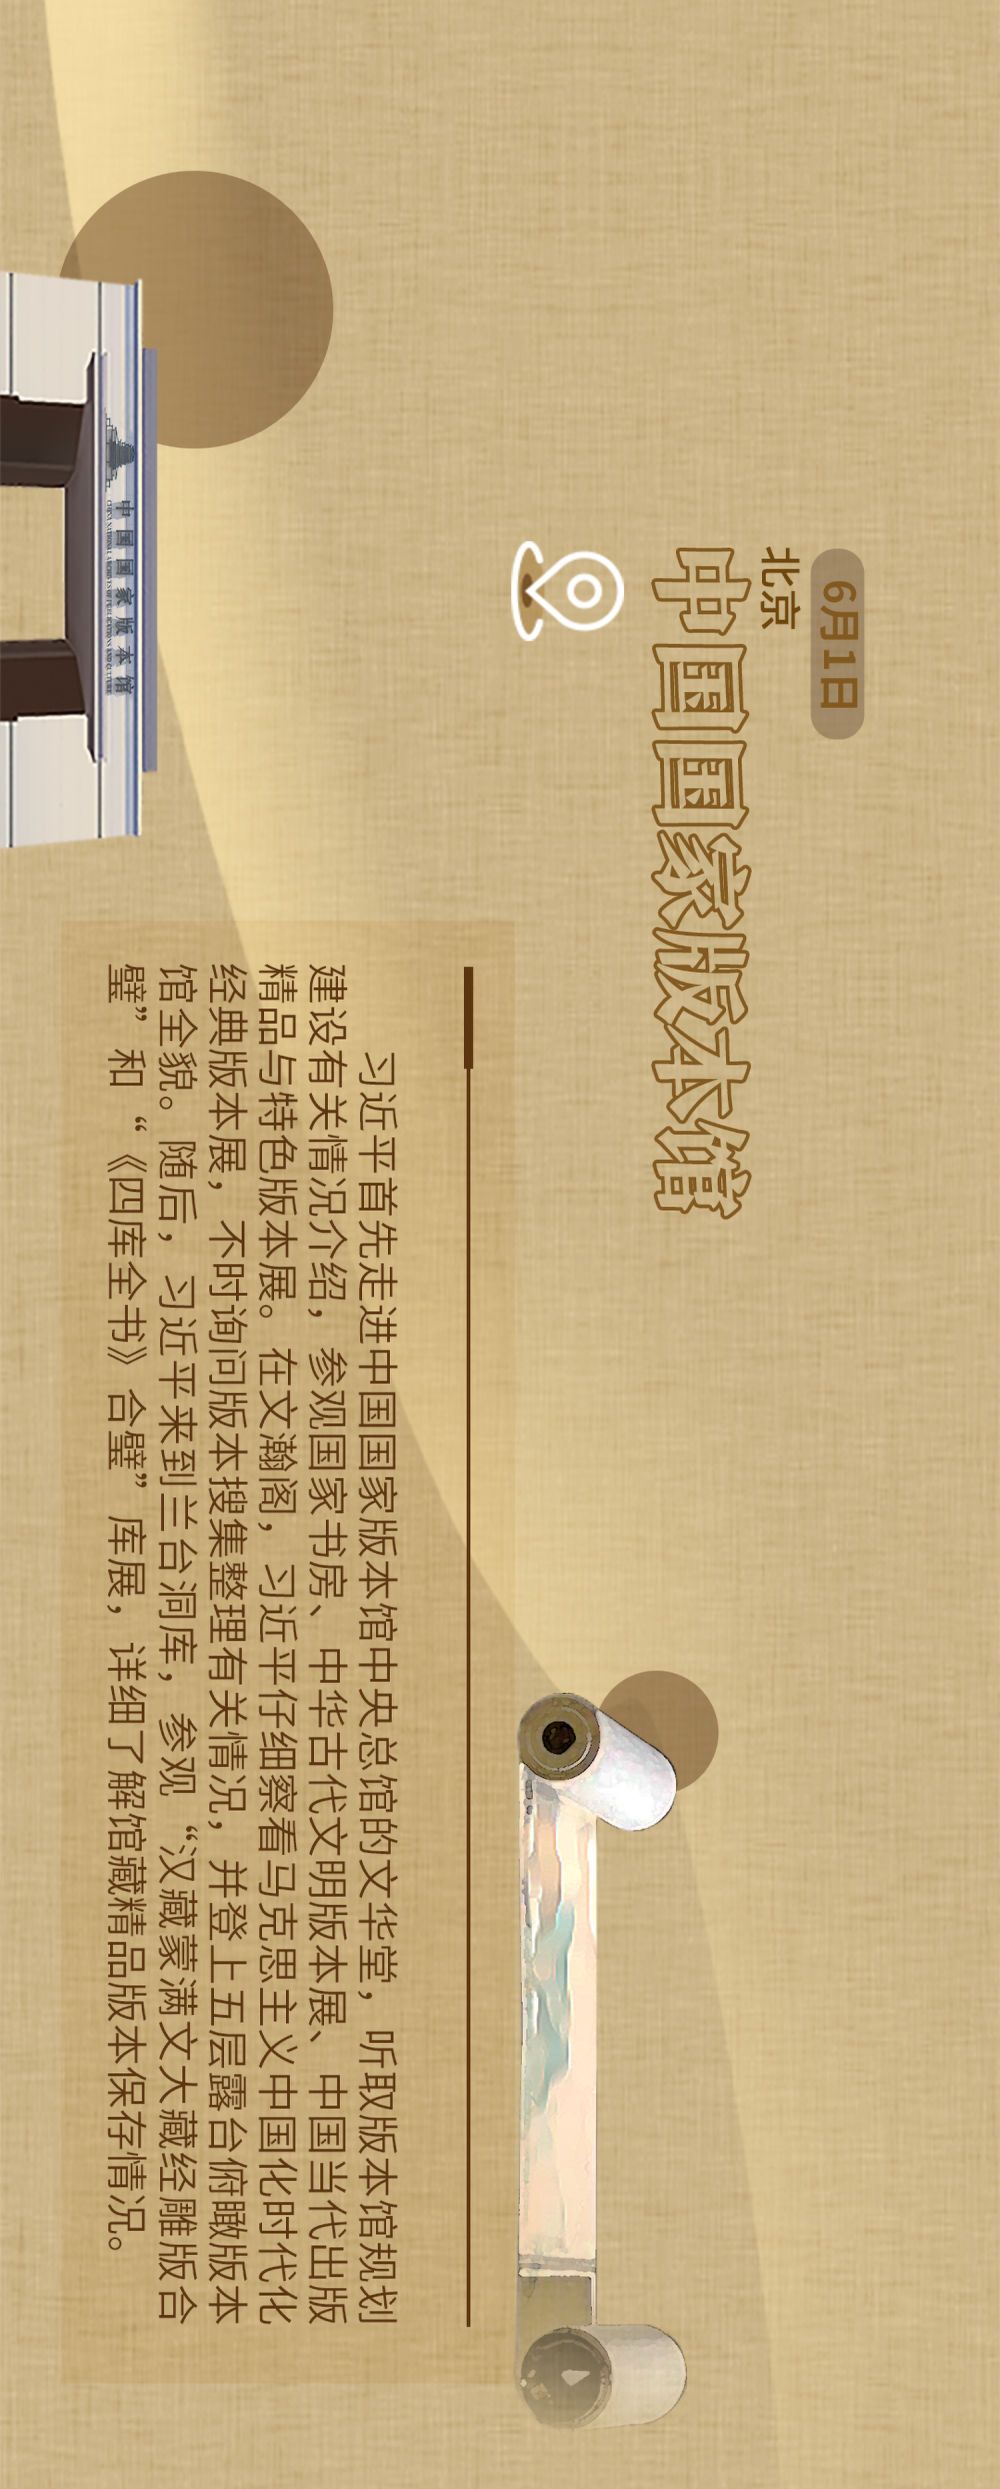 6月1日
北京
中国国家版本馆
中国国家版本馆
CHINA NATIONAL ARCHIVES OF PUBLICATIONS AND CULTURE
习近平首先走进中国国家版本馆中央总馆的文华堂，听取版本馆规划
建设有关情况介绍，参观国家书房、中华古代文明版本展、中国当代出版
精品与特色版本展。在文瀚阁，习近平仔细察看马克思主义中国化时代化
经典版本展，不时询问版本搜集整理有关情况，并登上五层露台俯瞰版本
馆全貌。随后，习近平来到兰台洞库，参观“汉藏蒙满文大藏经雕版合
璧”和“《四库全书》合璧”库展，详细了解馆藏精品版本保存情况。